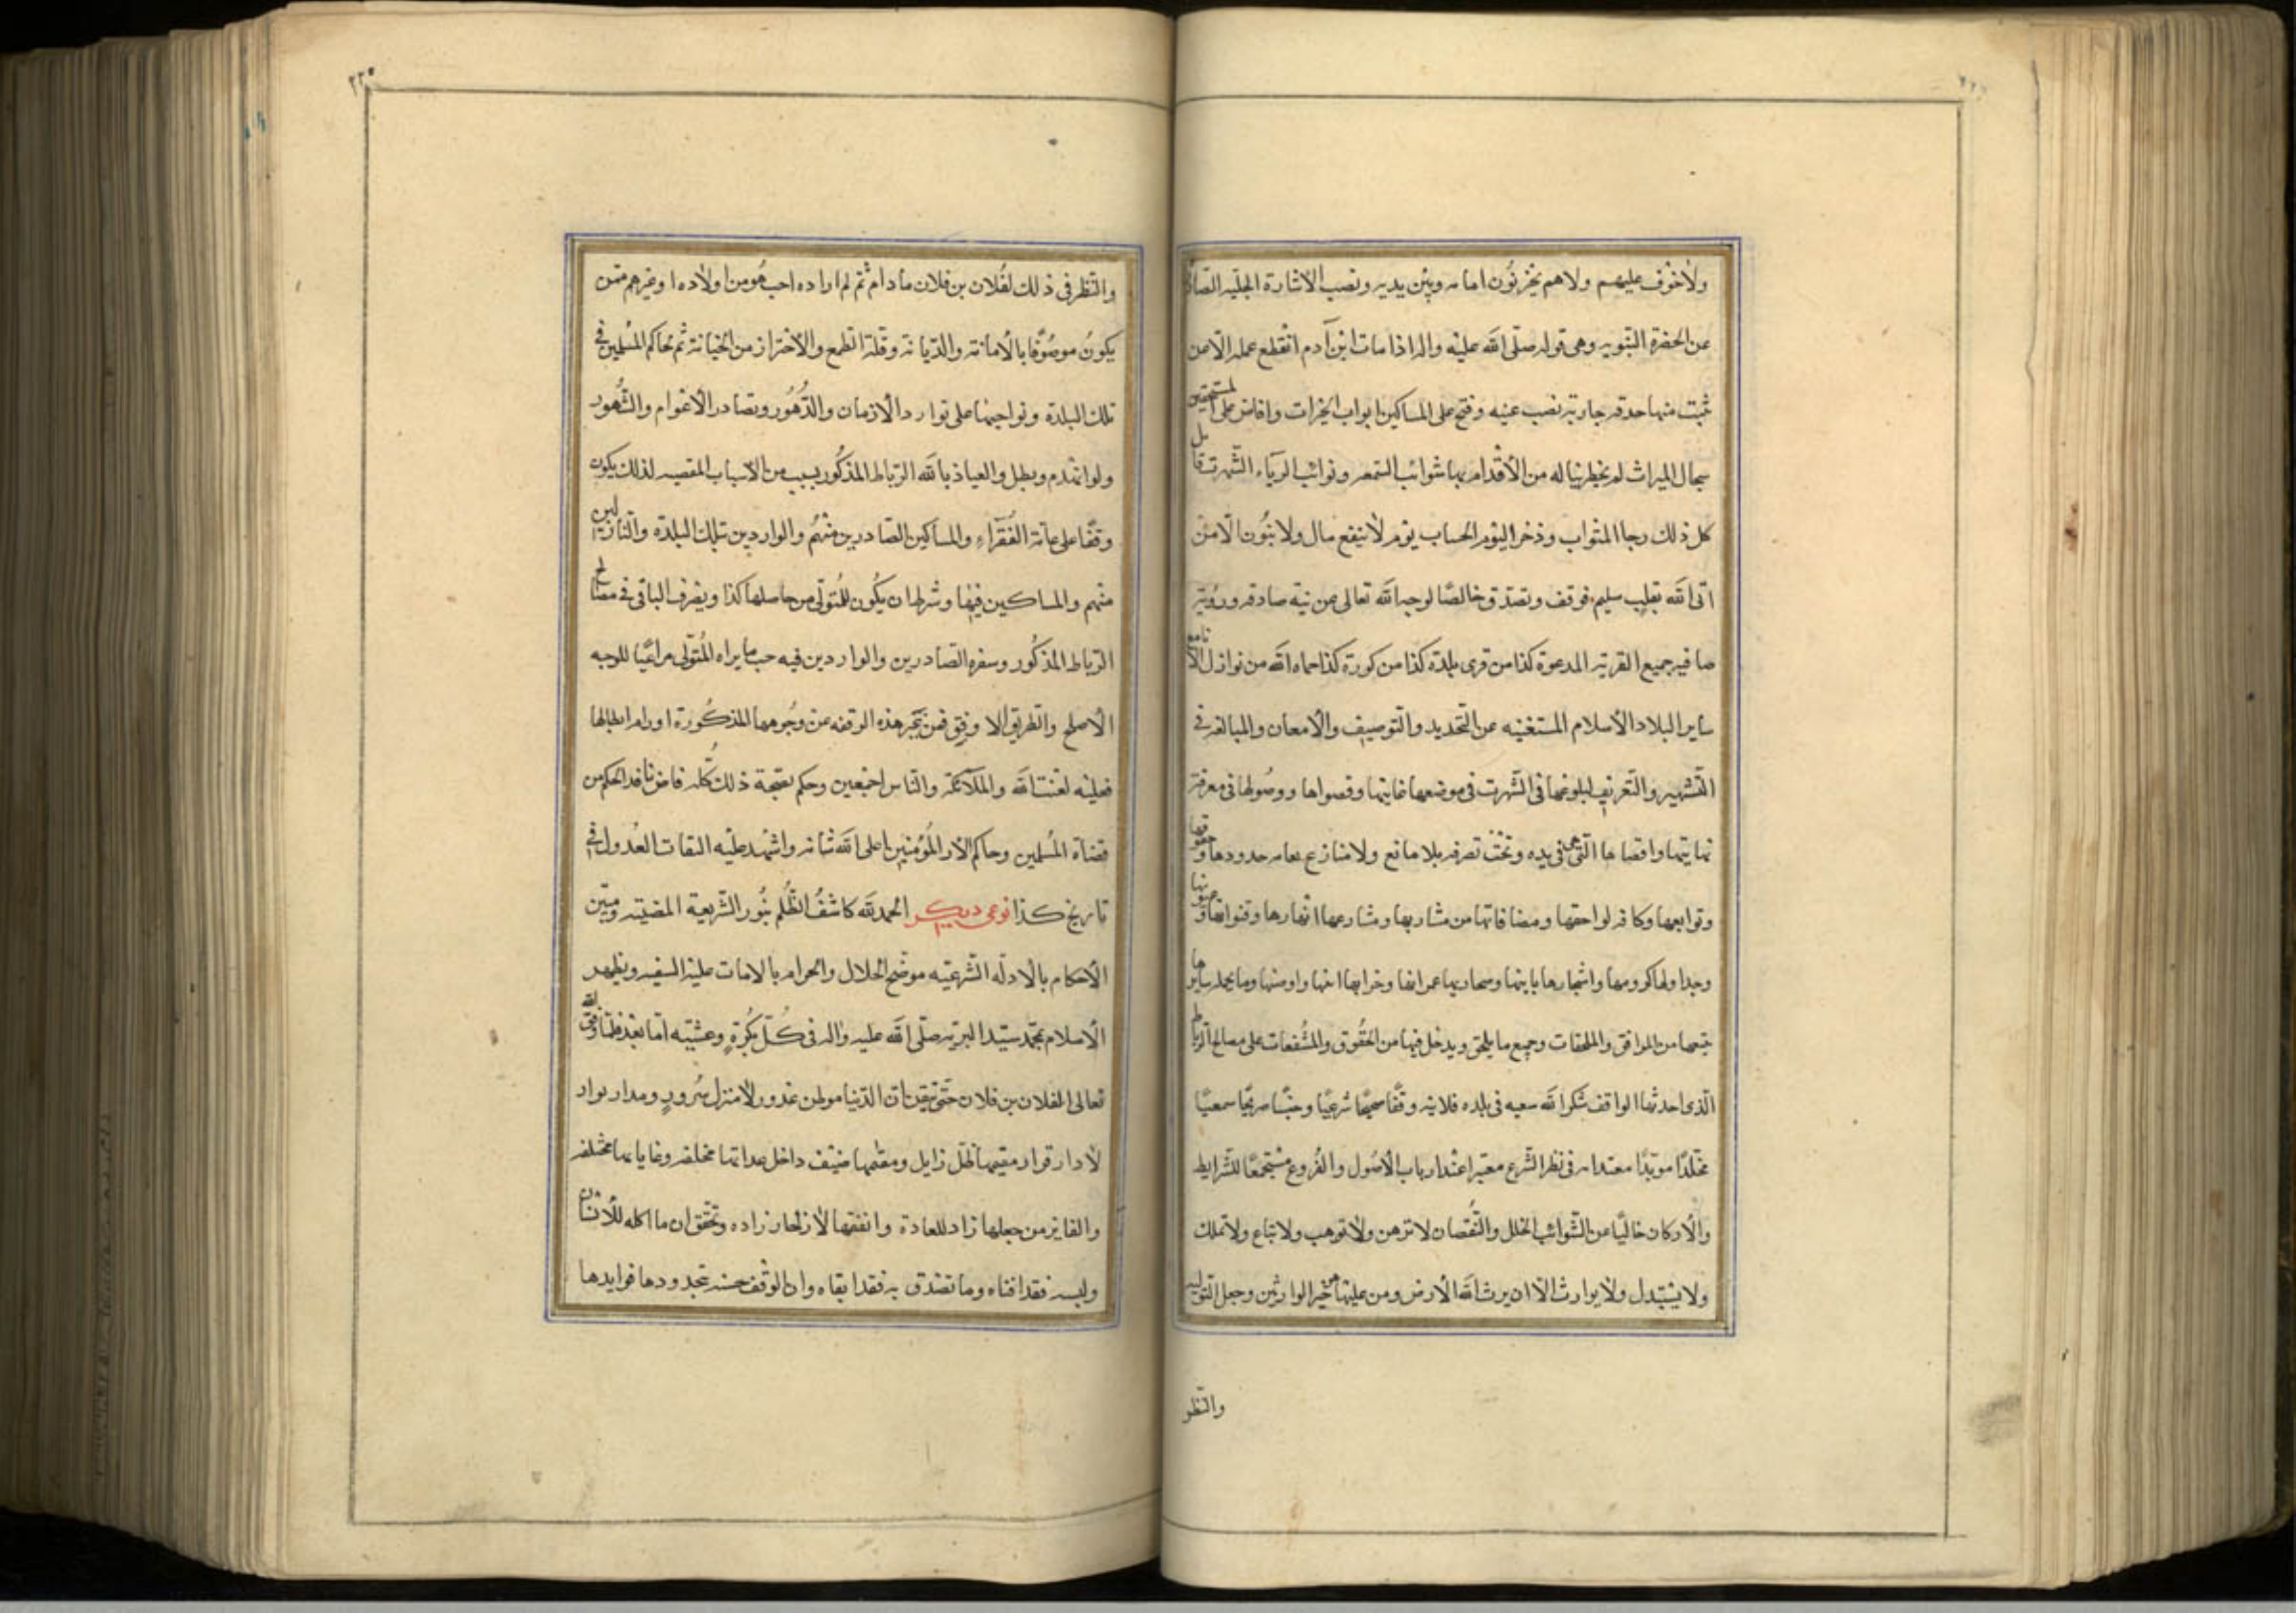 ولاخوف عليهم ولاهم يحزنون امامه وبين يديه ونصب الاشارة الجليه الصا
عن الحضرة النبويه وهى قوله صلى الله عليه واله اذا مات ابن آدم انقطع عمله الا من
ثبت منها صدقه جاريه نصب عنيه وفتح على المساكين ابواب الخيرات وافاض على المستحقين
سجال الميراث لم يخطر بباله من الأقدام بها شوائب السمعه ونوائب الرياء الشهرت قابل
كل ذلك رجا المثواب وذخر اليوم الحساب يوم لاينفع مال ولا بنون الا من
اتى الله بقلب سليم فوقف وتصدق خالصًا لوجه الله تعالى عن نية صادقه ورويّة
صافيه جميع القريه المدعوة كذا من قرى بلدة كذا من كورة كذا حماه الله من نوازل الا
ساير البلاد الأسلام المستغنيه عن التحديد والتوصيف والأمعان والمبالغه فى
التشهير والتعريف لبلوغها فى الشهرت فى موضعها غايتها وقصواها ووصولها فى معرفة
نهايتها واقصاها التى هى فى يده وتحت تصرفه بلا مانع ولا منازع بعامه حدودها وحقوقها
وتوابعها وكافه لواحقها ومضافاتها من مشاربها ومشارعها انهارها وقنواتها و
وجداولها كرومها واشجارها عمرانها وخرابها وما يحمله سايرها
جميعها من المرافق والملحقات وجميع ما يلحق ويدخل فيها من الحقوق والمشفعات على مصالح الرباط
الذى احدثها الواقف شكر الله سعيه فى بلده فلانيه وقفًا صحيحًا شرعيًا وحبسًا صريحًا سمعيًا
مخلدًا مويدًا معتدا به فى نظر الشرع معتبرا عند ارباب الأصول والفروع مستجمعًا للشرايط
والأركان خاليًا عن الشوائب الخلل والنقصان لا ترهن ولا توهب ولا تباع ولا تملك
ولا يستبدل ولا يوارث الا ان يرث الله الأرض ومن عليها وهو خير الوارثين وجعل التوليه
والنظر
٢٢٥
والنظر فى ذلك لفلان بن فلان مادام ثم لم اراده احب هو من اولاده او غيرهم ممن
يكون موصوفًا بالأمانة والديانة وقلة الطمع والأحتراز من الخيانة ثم لحاكم المسلمين فى
تلك البلدة ونواحيها على توارد الأزمان والدهور وتصادر الأعوام والشهور
ولو انهدم وبطل والعياذ بالله الرباط المذكور بسبب من الاسباب المقضيه لذلك يكون
وقفًا على عامة الفقرآء والمساكين الصادرين منهم والواردين بتلك البلدة والنازلين
منهم والمساكين فيها وشرط ان يكون للمتولى من حاصلها كذا ويصرف الباقى فى مصالح
الرباط المذكور وسفره الصادرين والواردين فيه حسب مايراه المتولى مراعيًا للوجه
الأصلح والطريق الاوفق فمن يغير هذه الوقفه عن وجوهها المذكورة او رام ابطالها
فعليه لعنت الله والملآئكة والناس اجمعين وحكم بصحة ذلك كله قاض نافد الحكم من
قضاة المسلمين وحاكم الأر المؤمنين اعلى الله شانه واشهد عليه الثقات العدول فى
تاريخ كذا نوعى ديكر الحمد لله كاشف الظلم بنور الشريعة المضيئه ومبين
الأحكام بالأدله الشرعيه موضح الحلال والحرام بالامات عليه السفيه ويظهر
الأسلام بمحمد سيد البريه صلى الله عليه واله فى كل بكرة وعشيه اما بعد فلما وفق الله
تعالى الفلان بن فلان حتى تيقن ان الدنيا موطن غدور لا منزل سرور ومدار بوار
لا دار قرار مقيمها ظل زايل ومقيمها ضيف داخل عداتها مخلفه وغاياتها مختلفه
والفايز من جعلها زاد للعادة وانفقها لأزلحار زاده وتحقق ان ما اكله للأنسان
ولبسه فقد افناه وما تصدق به فقد ابقاه وان الوقف حسنه تجدودها فوايدها